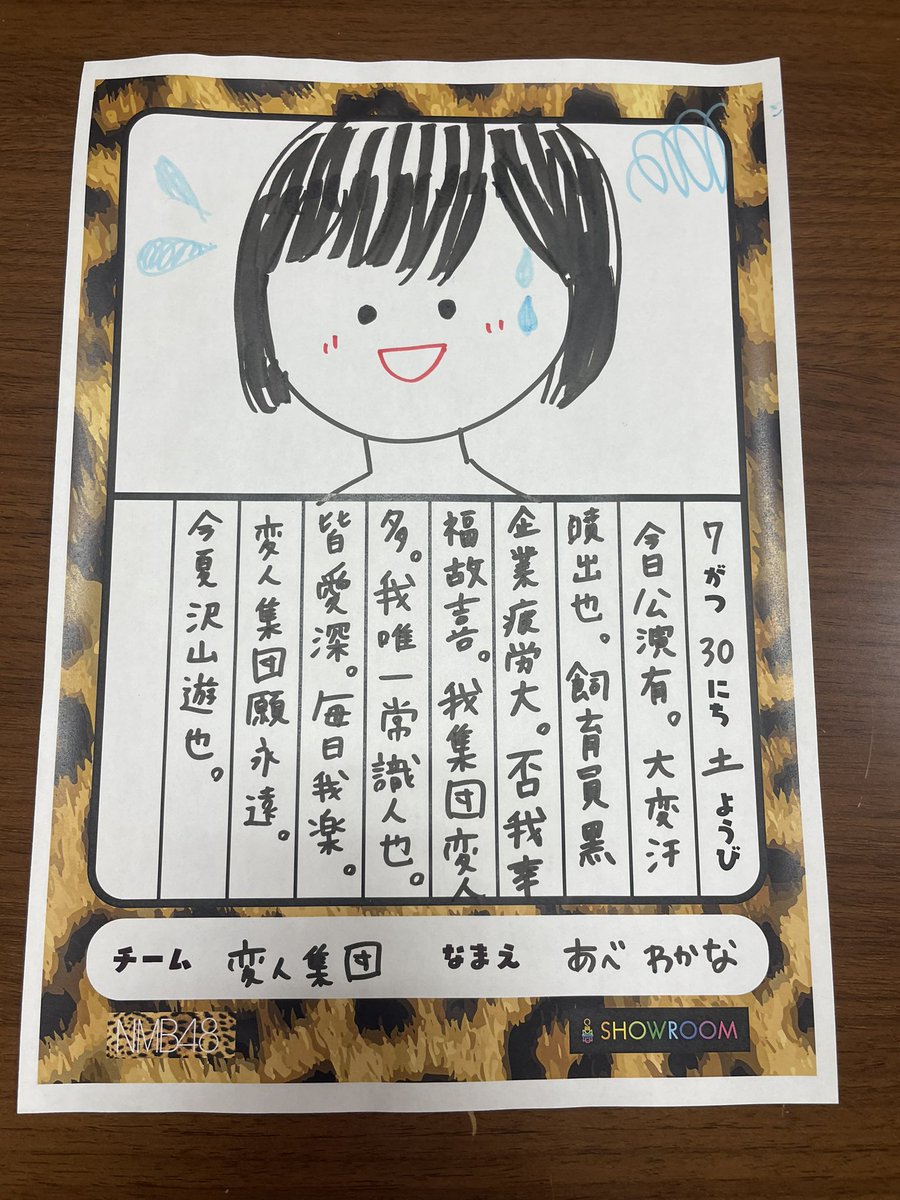 7がつ30にち土ようび
今日公演有。大変汗
噴出也。飼育員黒
企業疲労大。否我幸
福故喜。我集団変人
多。我唯一常識人也。
皆愛深。毎日我楽。
変人集団願永遠。
今夏沢山遊也。
チーム 変人集団 なまえ あべ わかな
NMB48
SHOWROOM